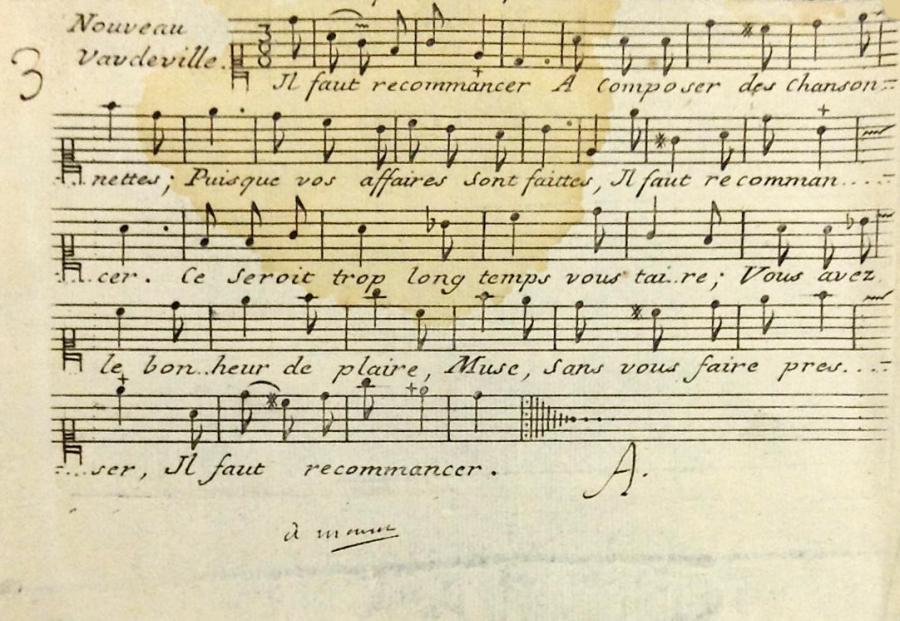 Nouveau
Vaudeville.
3
3
8
Il faut recommancer A composer des chanson=
nettes; Puisque vos affaires sont faittes, Il faut recomman....=
...cer. Ce seroit trop long temps vous tai..re; Vous avez
le bon..heur de plaire, Muse, sans vous faire pres....=
....ser, Il faut recommancer.
A.